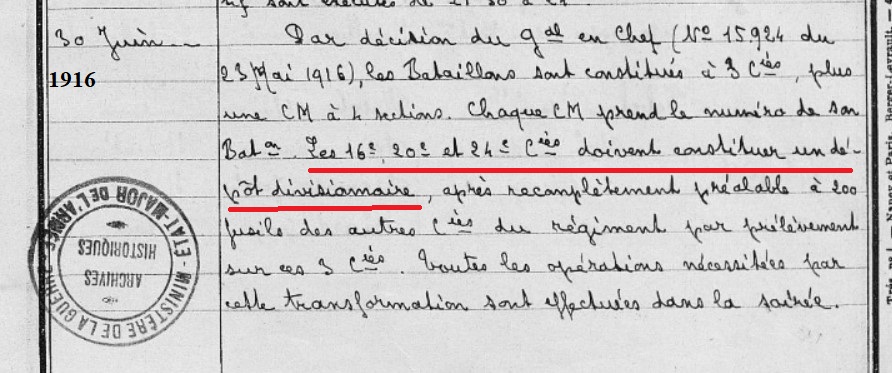 30 Juin
1916
Par décision du gal en Chef (No 15.924 du
23 Mai 1916), les Bataillons sont constitués à 3 Cies, plus
une CM à 4 sections. Chaque CM prend le numéro de son
Baton. Les 16e, 20e et 24e Cies doivent constituer un dé-
pôt divisionnaire, après recomplètement préalable à 200
fusils des autres Cies du régiment par prélèvement
sur ces 3 Cies. Toutes les opérations nécessitées par
cette transformation sont effectuées dans la soirée.
MINISTÈRE DE LA GUERRE
ETAT-MAJOR DE L'ARMÉE
ARCHIVES
HISTORIQUES
Nancy et Paris, Berger-Levrault